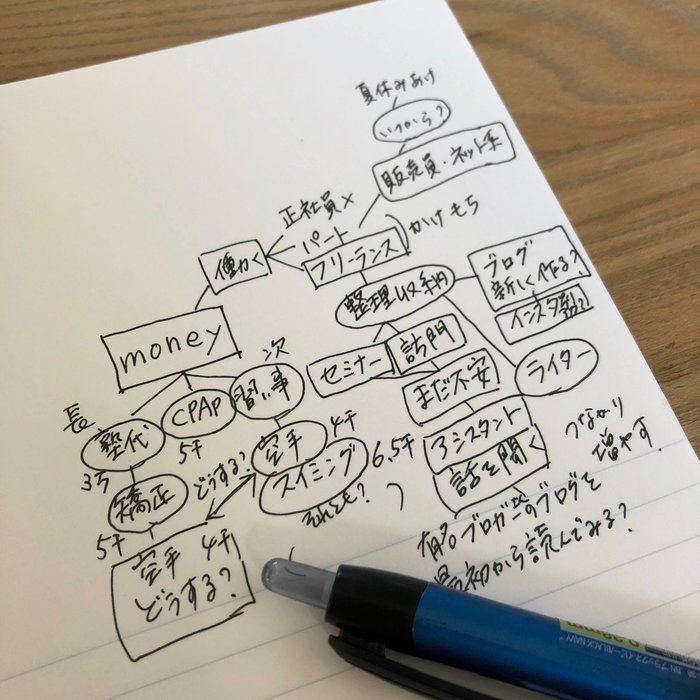 夏休みあけ
いつから?
販売員・ネット系
正社員×
パート
フリーランス
かけもち
働く
money
整理収納
ブログ
新しく作る?
セミナー
訪問
まだ不安
ライター
アシスタント
話を聞く
つながり
増やす。
有名ブロガーのブログを
最初から読んでみる?
長
塾代
3万
矯正
5千
CPAP
5千
次
習い事
空手
4千
スイミング
6.5千
どうする?
それとも?
空手 4千
どうする?
0.38mm
BLACK NAVY